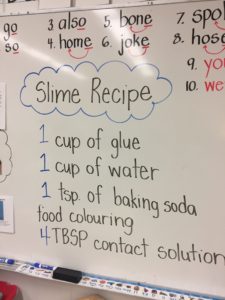 go 3. also 5. bone 7. spo
so 4. home 6. joke 8. hose
9. you
10. we
Slime Recipe
1 cup of glue
1 cup of water
1 tsp. of baking soda
food colouring
4 TBSP contact solution